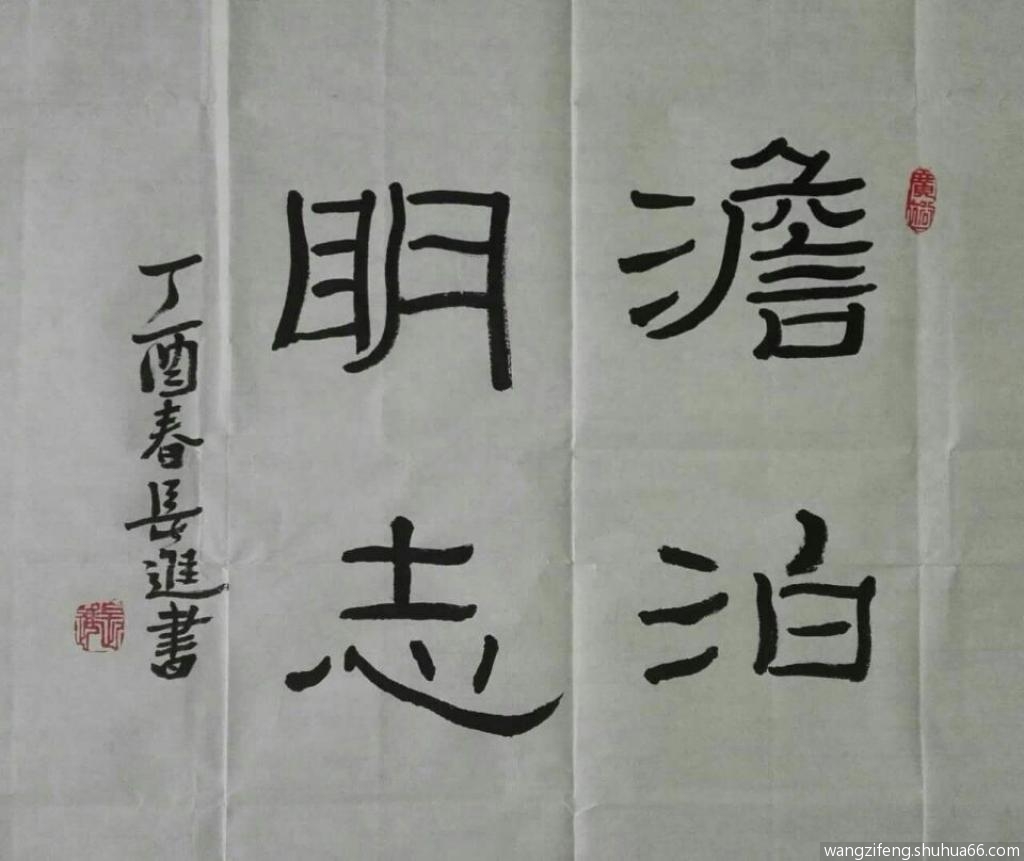 澹泊
明志
丁酉春長進書
wangzifeng.shuhua66.com